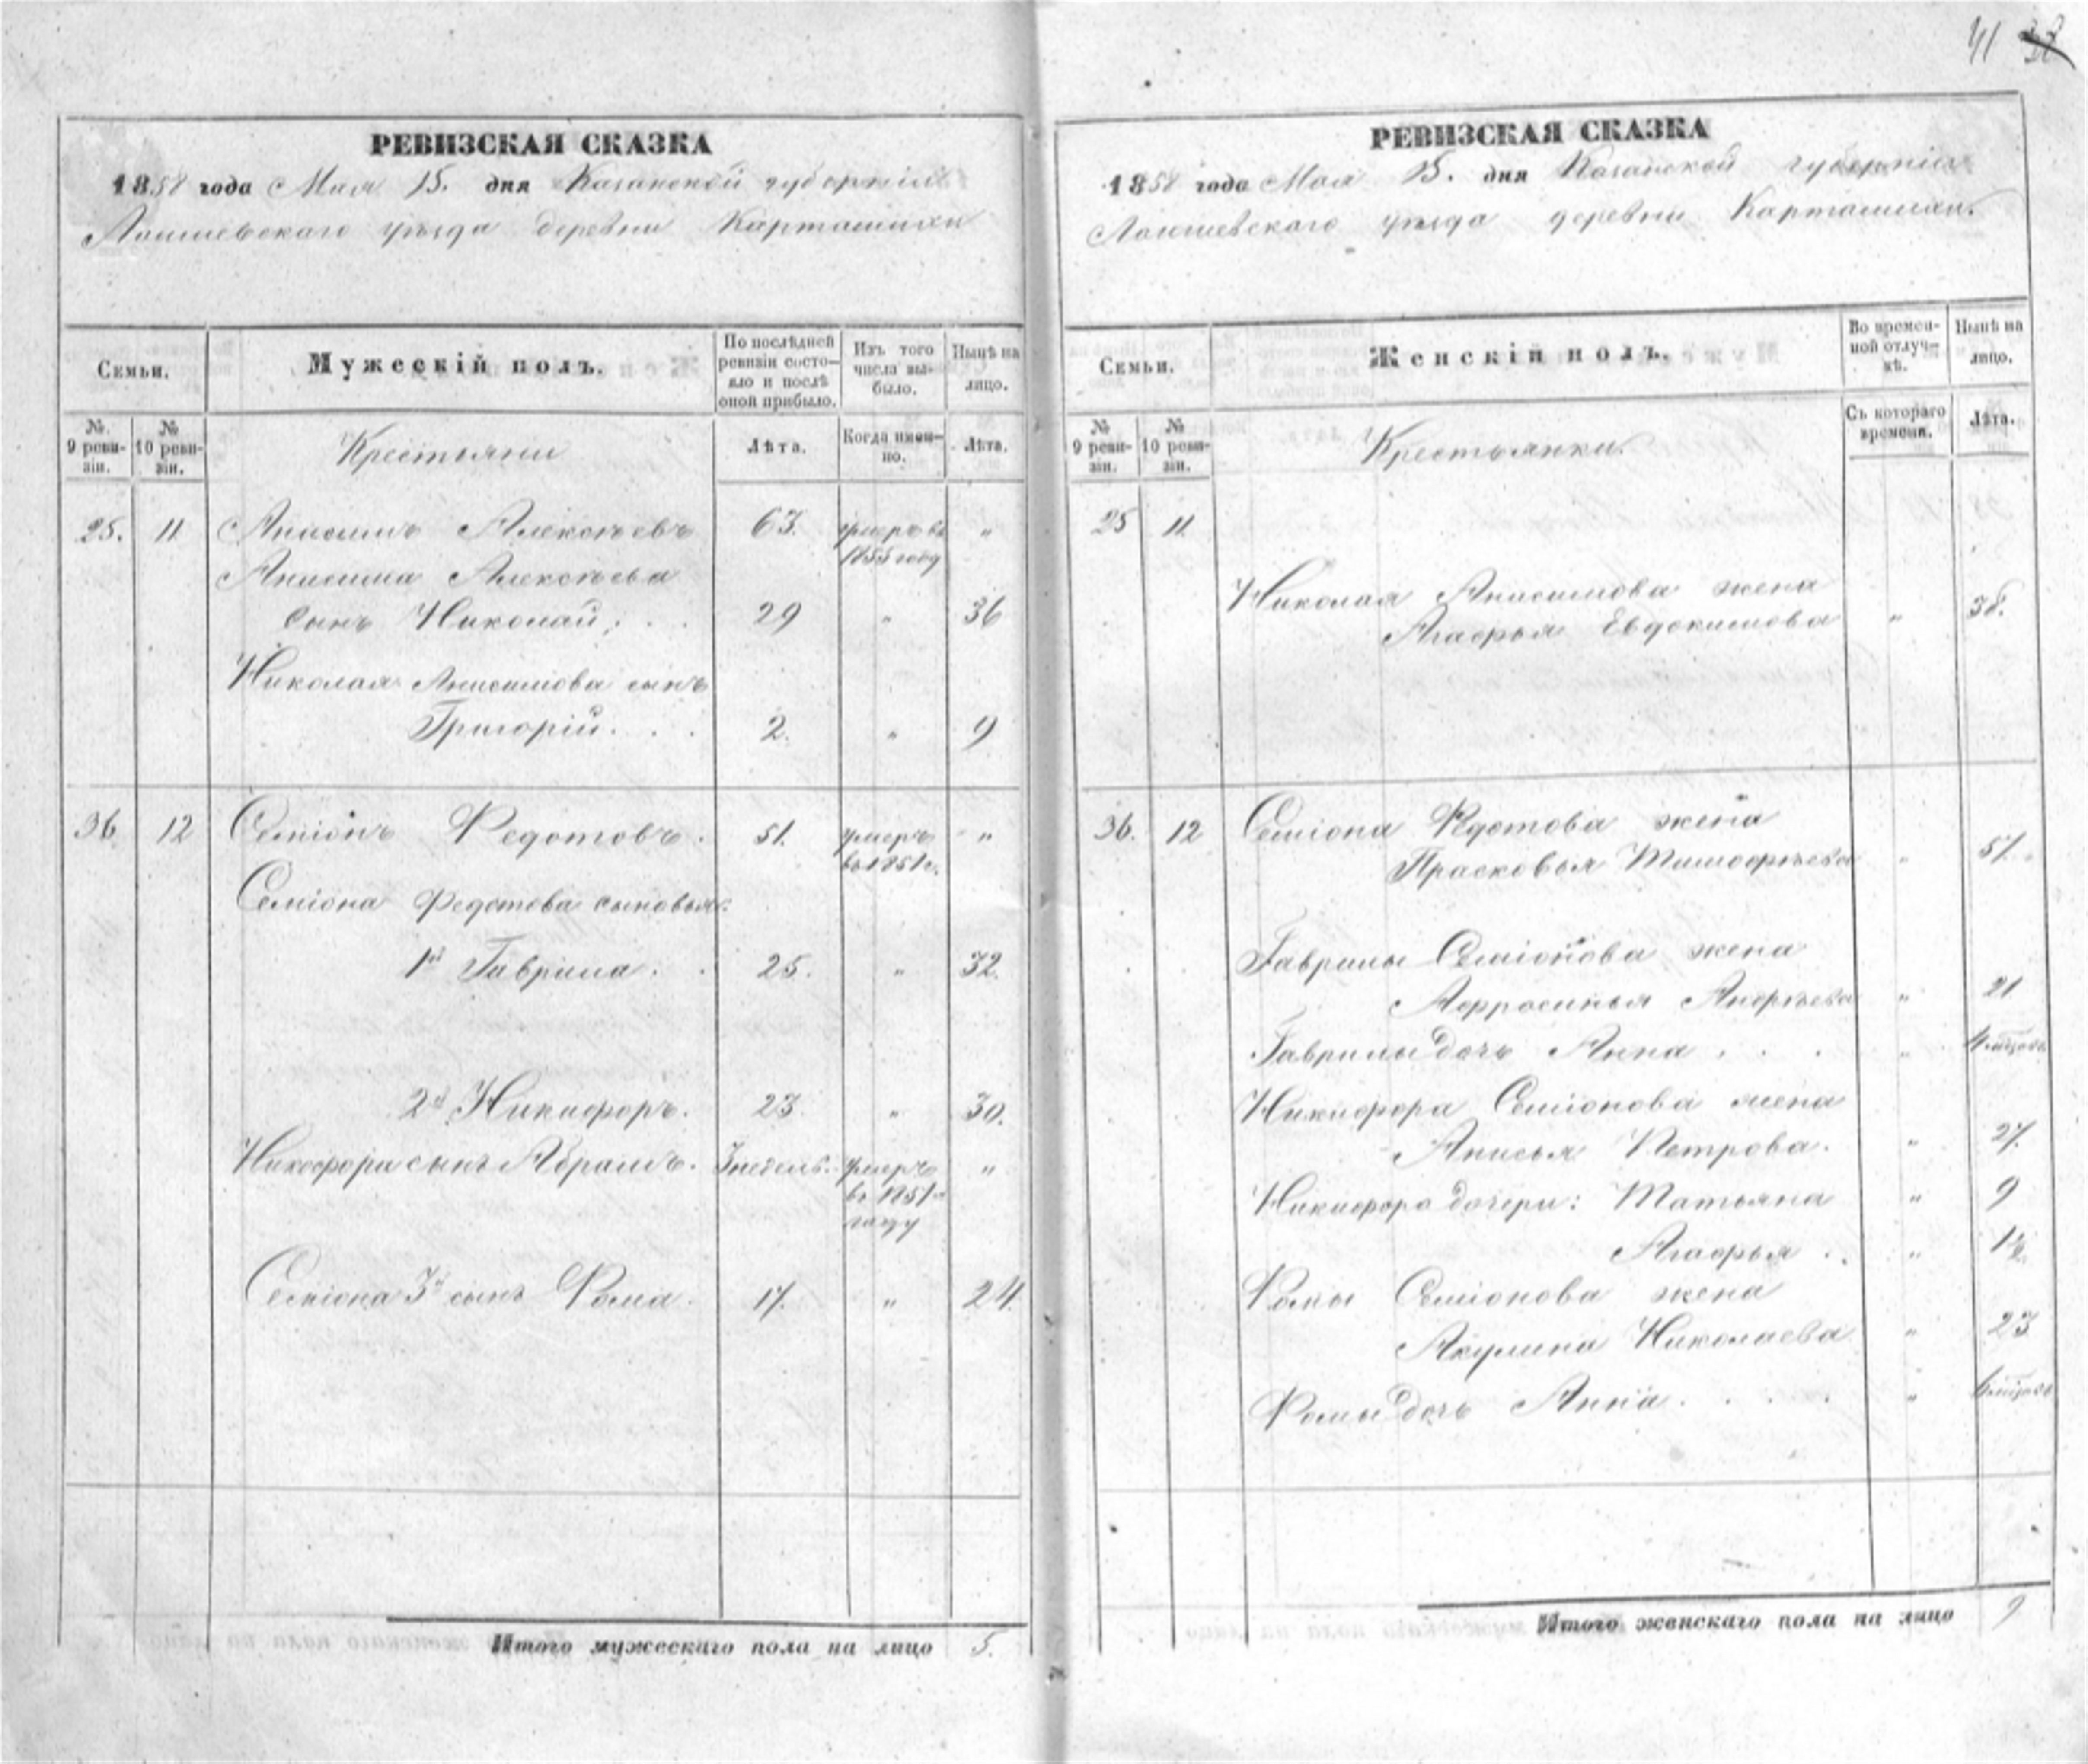 41 38
РЕВИЗСКАЯ СКАЗКА
1858 года Мая 15. дня Казанской губерніи
Лаишевскаго уѣзда деревни Карташихи
Семьи.
Мужескій полъ.
По послѣдней ревизіи состояло и послѣ оной прибыло.
Изъ того числа выбыло.
Нынѣ на лицо.
№ 9 ревизіи.
№ 10 ревизіи.
Крестьяни
Лѣта.
Когда именно.
Лѣта.
25. 11 Анисимъ Алексѣевъ 63. умеръ въ 1855 году "
Анисима Алексѣева
сынъ Николай; . . 29 " 36
Николая Анисимова сынъ
Григорій . . . 2. " 9
36 12 Семіонъ Федотовъ. 51. умеръ въ 1851 г. "
Семіона Федотова сыновья:
1й Гаврила . . 25. " 32.
2й Никифоръ. 23 " 30.
Никифора сынъ Абрамъ. 3 недель. умеръ въ 1851 году "
Семіона 3й сынъ Фома. 17. " 24.
Итого мужескаго пола на лицо 5.
РЕВИЗСКАЯ СКАЗКА
1858 года Мая 15. дня Казанской губерніи
Лаишевскаго уѣзда деревни Карташихи.
Семьи.
Женскій полъ.
Во временной отлучкѣ.
Нынѣ на лицо.
№ 9 ревизіи.
№ 10 ревизіи.
Крестьянки.
Съ котораго времени.
Лѣта.
25 11
Николая Анисимова жена
Агафья Евдокимова " 38.
36. 12 Семіона Федотова жена
Прасковья Тимофѣева " 57.
Гаврилы Семіонова жена
Афросинья Андрѣева " 21
Гаврилы дочь Анна . . . "
Никифора Семіонова жена
Анисья Петрова. " 27.
Никифора дочери: Татьяна " 9
Агафья . . " 1½
Фомы Семіонова жена
Акулина Николаева " 23
Фомы дочь Анна . . . . "
Итого женскаго пола на лицо 9